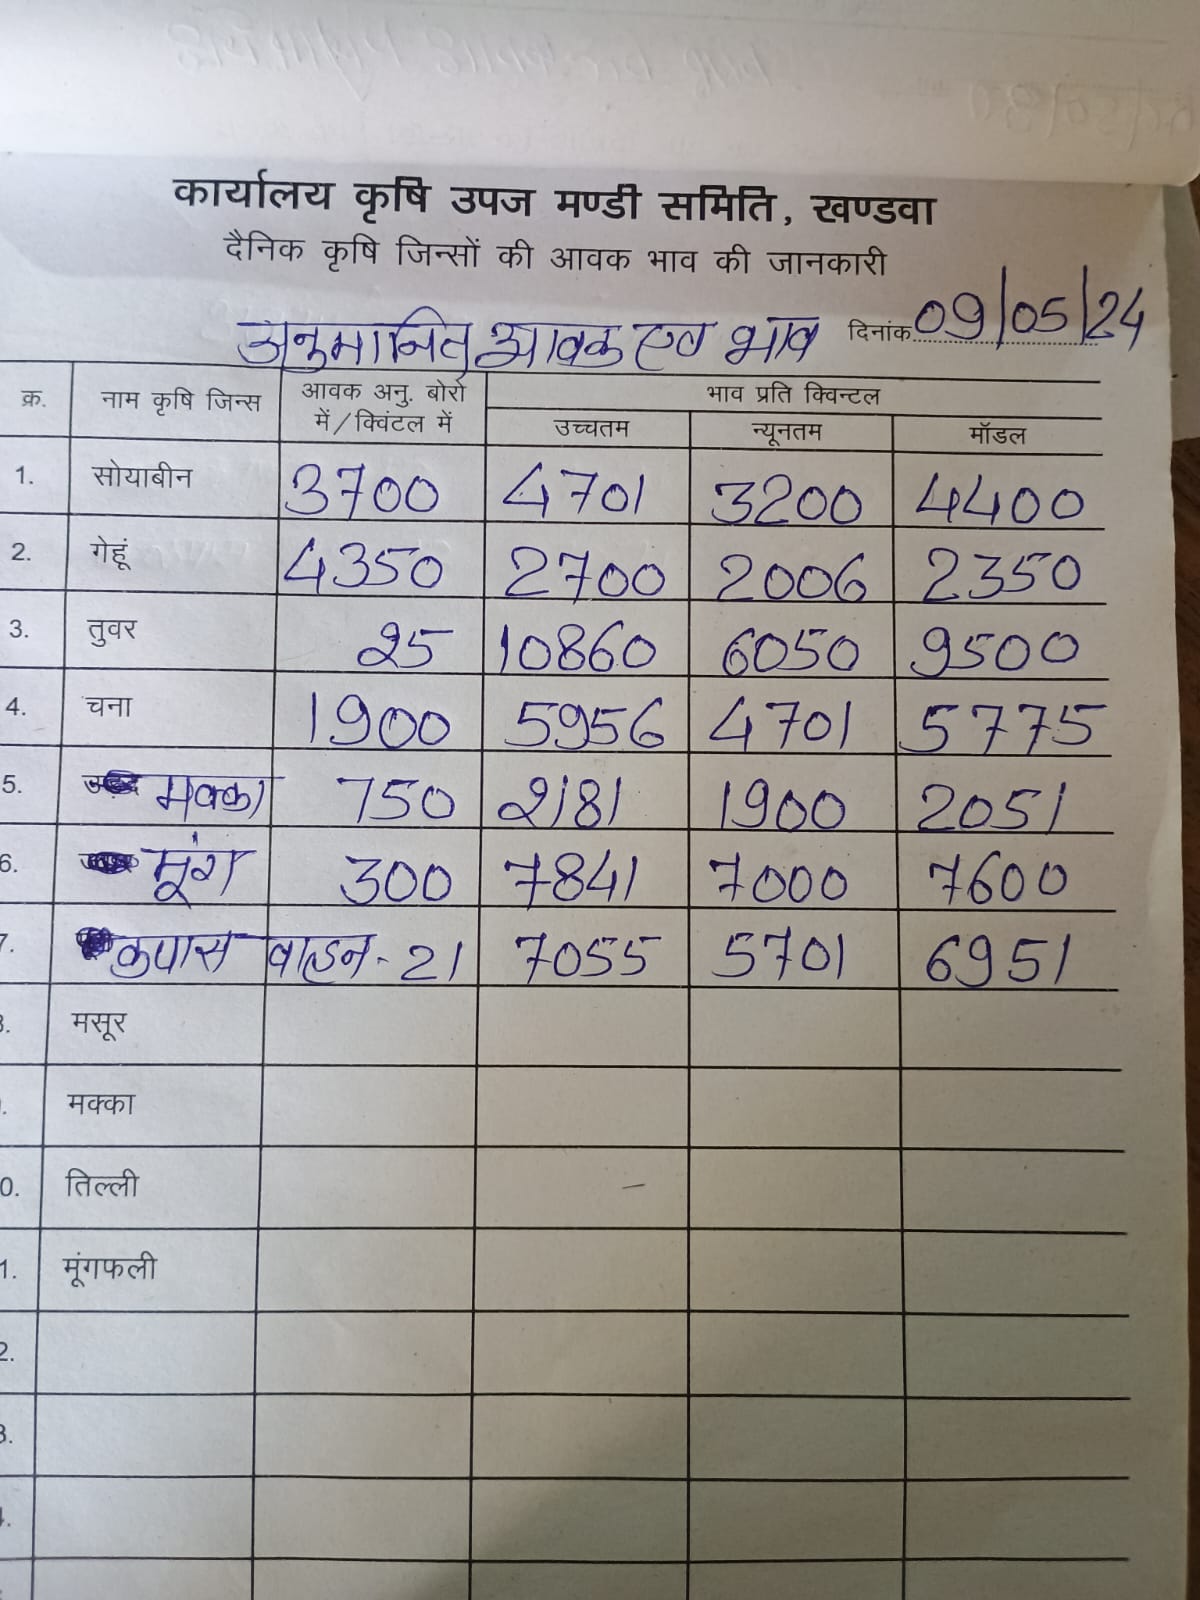 कार्यालय कृषि उपज मण्डी समिति, खण्डवा
दैनिक कृषि जिन्सों की आवक भाव की जानकारी
अनुमानित आवक एव भाव दिनांक 09/05/24
क्र. नाम कृषि जिन्स आवक अनु. बोरो में/क्विंटल में भाव प्रति क्विन्टल
उच्चतम न्यूनतम मॉडल
1. सोयाबीन 3700 4701 3200 4400
2. गेहूं 4350 2700 2006 2350
3. तुवर 25 10860 6050 9500
4. चना 1900 5956 4701 5775
5. मक्का 750 2181 1900 2051
6. मूंग 300 7841 7000 7600
7. कपास वाहन - 21 7055 5701 6951
8. मसूर
मक्का
0. तिल्ली
1. मूंगफली
2.
3.